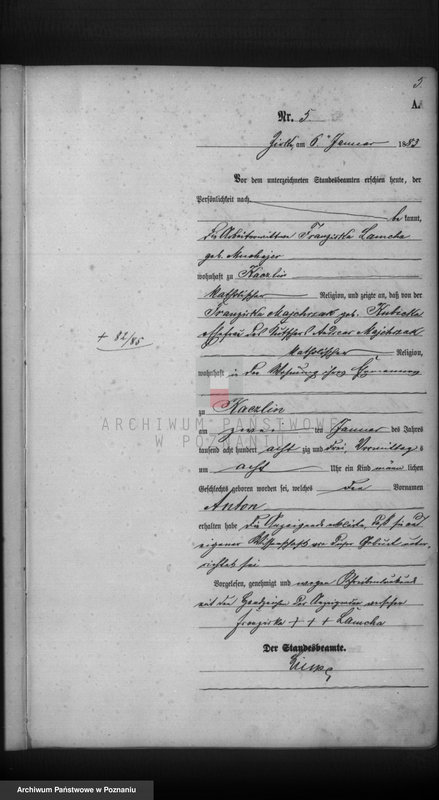 5.
A.
Nr. 5
Zirke, am 6ten Januar 1883
Vor dem unterzeichneten Standesbeamten erschien heute, der
Persönlichkeit nach
be kannt,
die Arbeiterwittwe Franziska Lamcha
geb.
wohnhaft zu Kaczlin
katholischer Religion, und zeigte an, daß von der
Franziska Majchrzak geb. Kubicka
Ehefrau des Andreas Majchrzak
katholischer Religion,
wohnhaft in der Wohnung ihres Ehemannes
+ 82/85
zu Kaczlin
am ten Januar des Jahres
tausend acht hundert acht zig und drei, Vormittags
um acht Uhr ein Kind männ lichen
Geschlechts geboren worden sei, welches den Vornamen
Anton
erhalten habe. Die Anzeigende erklärte, daß sie aus
eigener Wissenschaft von dieser Geburt unter-
richtet sei
Vorgelesen, genehmigt und wegen Schreibensunkunde
mit den Handzeichen der Anzeigenden versehen
Franziska + + + Lamcha
Der Standesbeamte.
ARCHIWUM PAŃSTWOWE
W POZNANIU
Archiwum Państwowe w Poznaniu